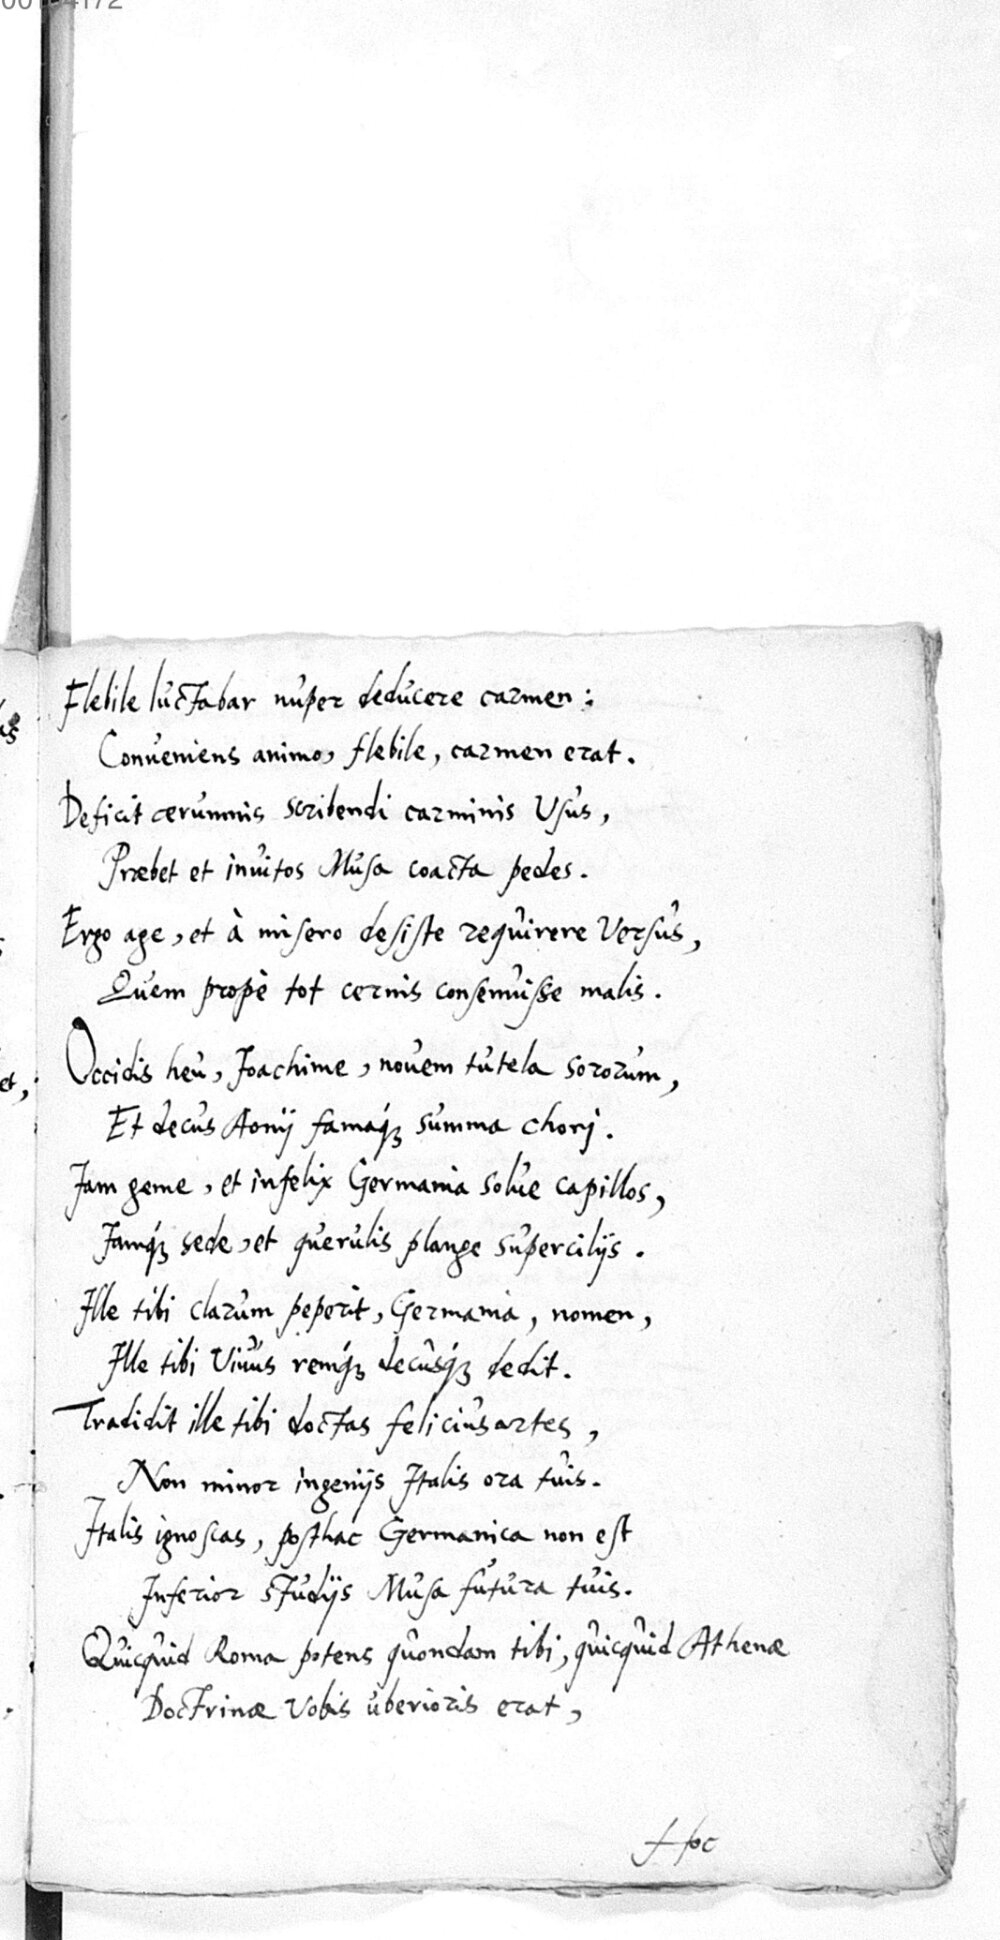 Flebile luctabar nuper deducere carmen:
Conveniens animo, flebile, carmen erat.
Deficit ærumnis scribendi carminis Usus,
Præbet et invitos Musa coacta pedes.
Ergo age, et à misero desiste requirere Versus,
Quem propè tot cernis consenuisse malis.
Occidis heu, Joachime, novem tutela sororum,
Et decus Aonij famaq́ꝫ summa chorj.
Jam geme, et infelix Germania solve capillos,
Jamq́ꝫ sede, et querulis plange supercilijs.
Ille tibi clarum peperit, Germania, nomen,
Ille tibi Vivus remq́ꝫ decusq́ꝫ dedit.
Tradidit ille tibi doctas felicius artes,
Non minor ingenijs Italis ora tuis.
Italis ignoscas, posthac Germanica non est
Inferior studijs Musa futura tuis.
Quicquid Roma potens quondam tibi, quicquid Athenæ
Doctrinæ Vobis uberioris erat,
Hoc